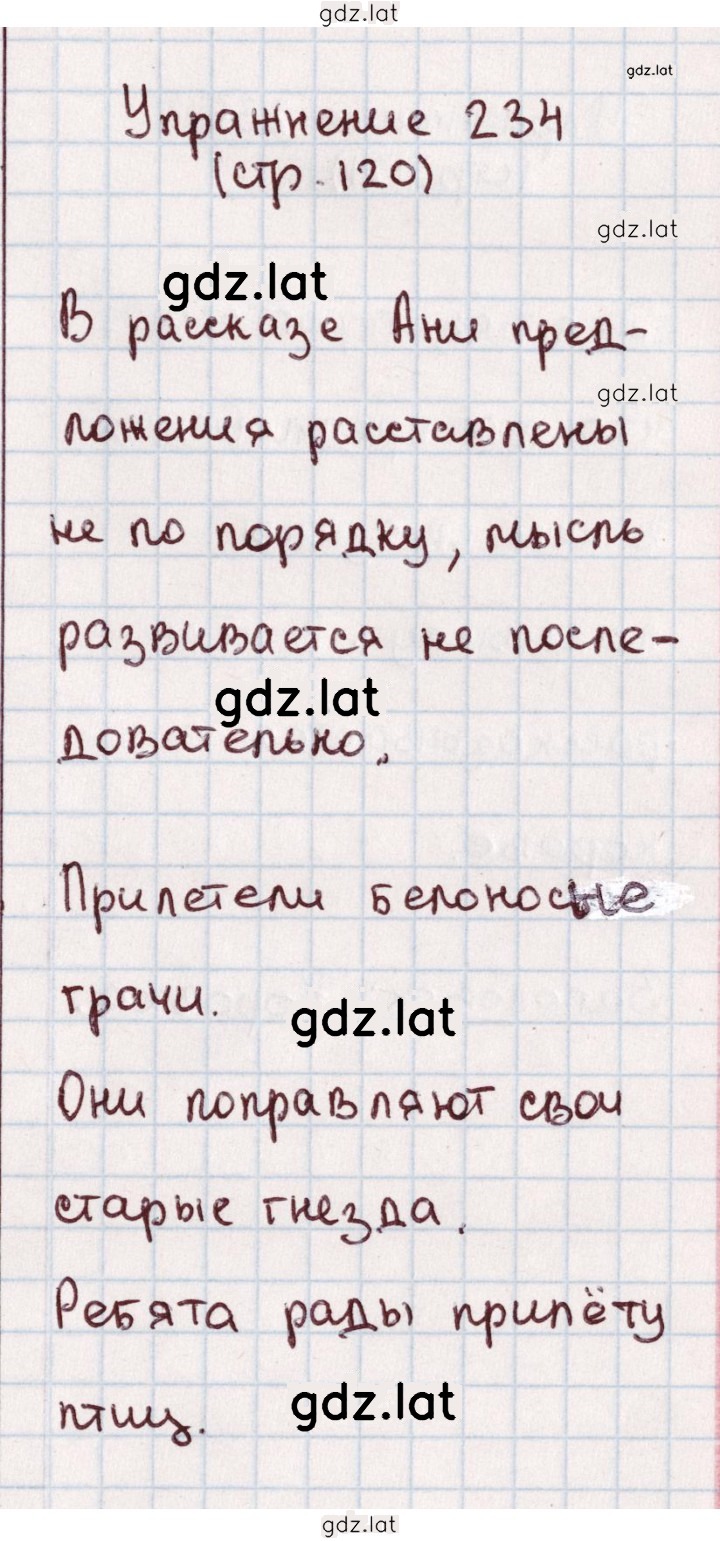 gdz.lat
gdz.lat
Упражнение 234
(стр. 120)
gdz.lat
gdz.lat
В рассказе Ани пред-
gdz.lat
ложения расставлены
не по порядку, мысль
развивается не после-
gdz.lat
довательно.
Прилетели белоносые
грачи.
gdz.lat
Они поправляют свои
старые гнезда.
Ребята рады прилёту
gdz.lat
птиц.
gdz.lat